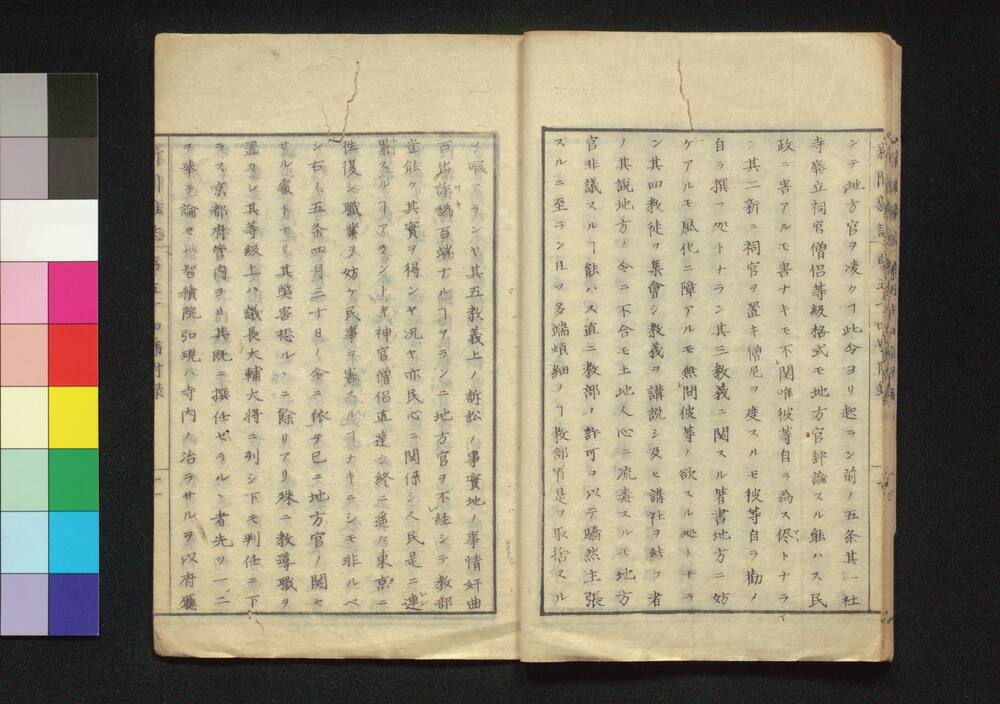 ンテ地方官ヲ凌クヿ此令ヨリ起ラン前ノ五条其一社
寺廢立祠官僧侶等級格式モ地方官評論スル能ハス民
政ニ害アルモ害ナキモ不関唯彼等自ラ為ス侭トナラ
ン其二新ニ祠官ヲ置キ僧尼ヲ度スルモ彼等自ラ勸ノ
自ラ撰フ処トナラン其三教義ニ関スル著書地方ニ妨
ケアルモ風化ニ障アルモ無問彼等ノ欲スル処トナラ
ン其四教徒ヲ集會シ教義ヲ講説シ及ヒ講社ヲ結フ者
ノ其説地方ノ令ニ不合モ土地人心ニ流毒スルモ地方
官非議スルヿ能ハス直ニ教部ノ許可ヲ以テ驕然主張
スルニ至ラン且ツ多端煩細ノヿ教部省是ヲ取捨スル
ノ暇アランヤ其五教義上ノ訴訟ノ事實地ノ事情奸曲
百出詐譎百端ナルヿアランニ地方官ヲ不経シテ教部
豈能ク其實ヲ得ンヤ况ヤ亦民心ニ関係シ人民是ニ連
累スルヿアランニ神官僧侶直達シ終ニ遥々東京ニ
徃復シ職業ヲ妨ケ民事ヲ害スルヿナキニシモ非ルベ
シ右ノ五条四月二十日ノ令ニ依テ已ニ地方官ノ関セ
サル處トナリ其獘害恐ルヽニ餘リアリ殊ニ教導職ヲ
置カレ其等級上ハ議長大輔大将ニ列シ下モ判任ニ下
ラス京都府管内ヨリ其既ニ撰任セラルヽ者先ツ一二
ヲ举テ論セハ智積院弘現ハ寺内ノ治ラサルヲ以府廳